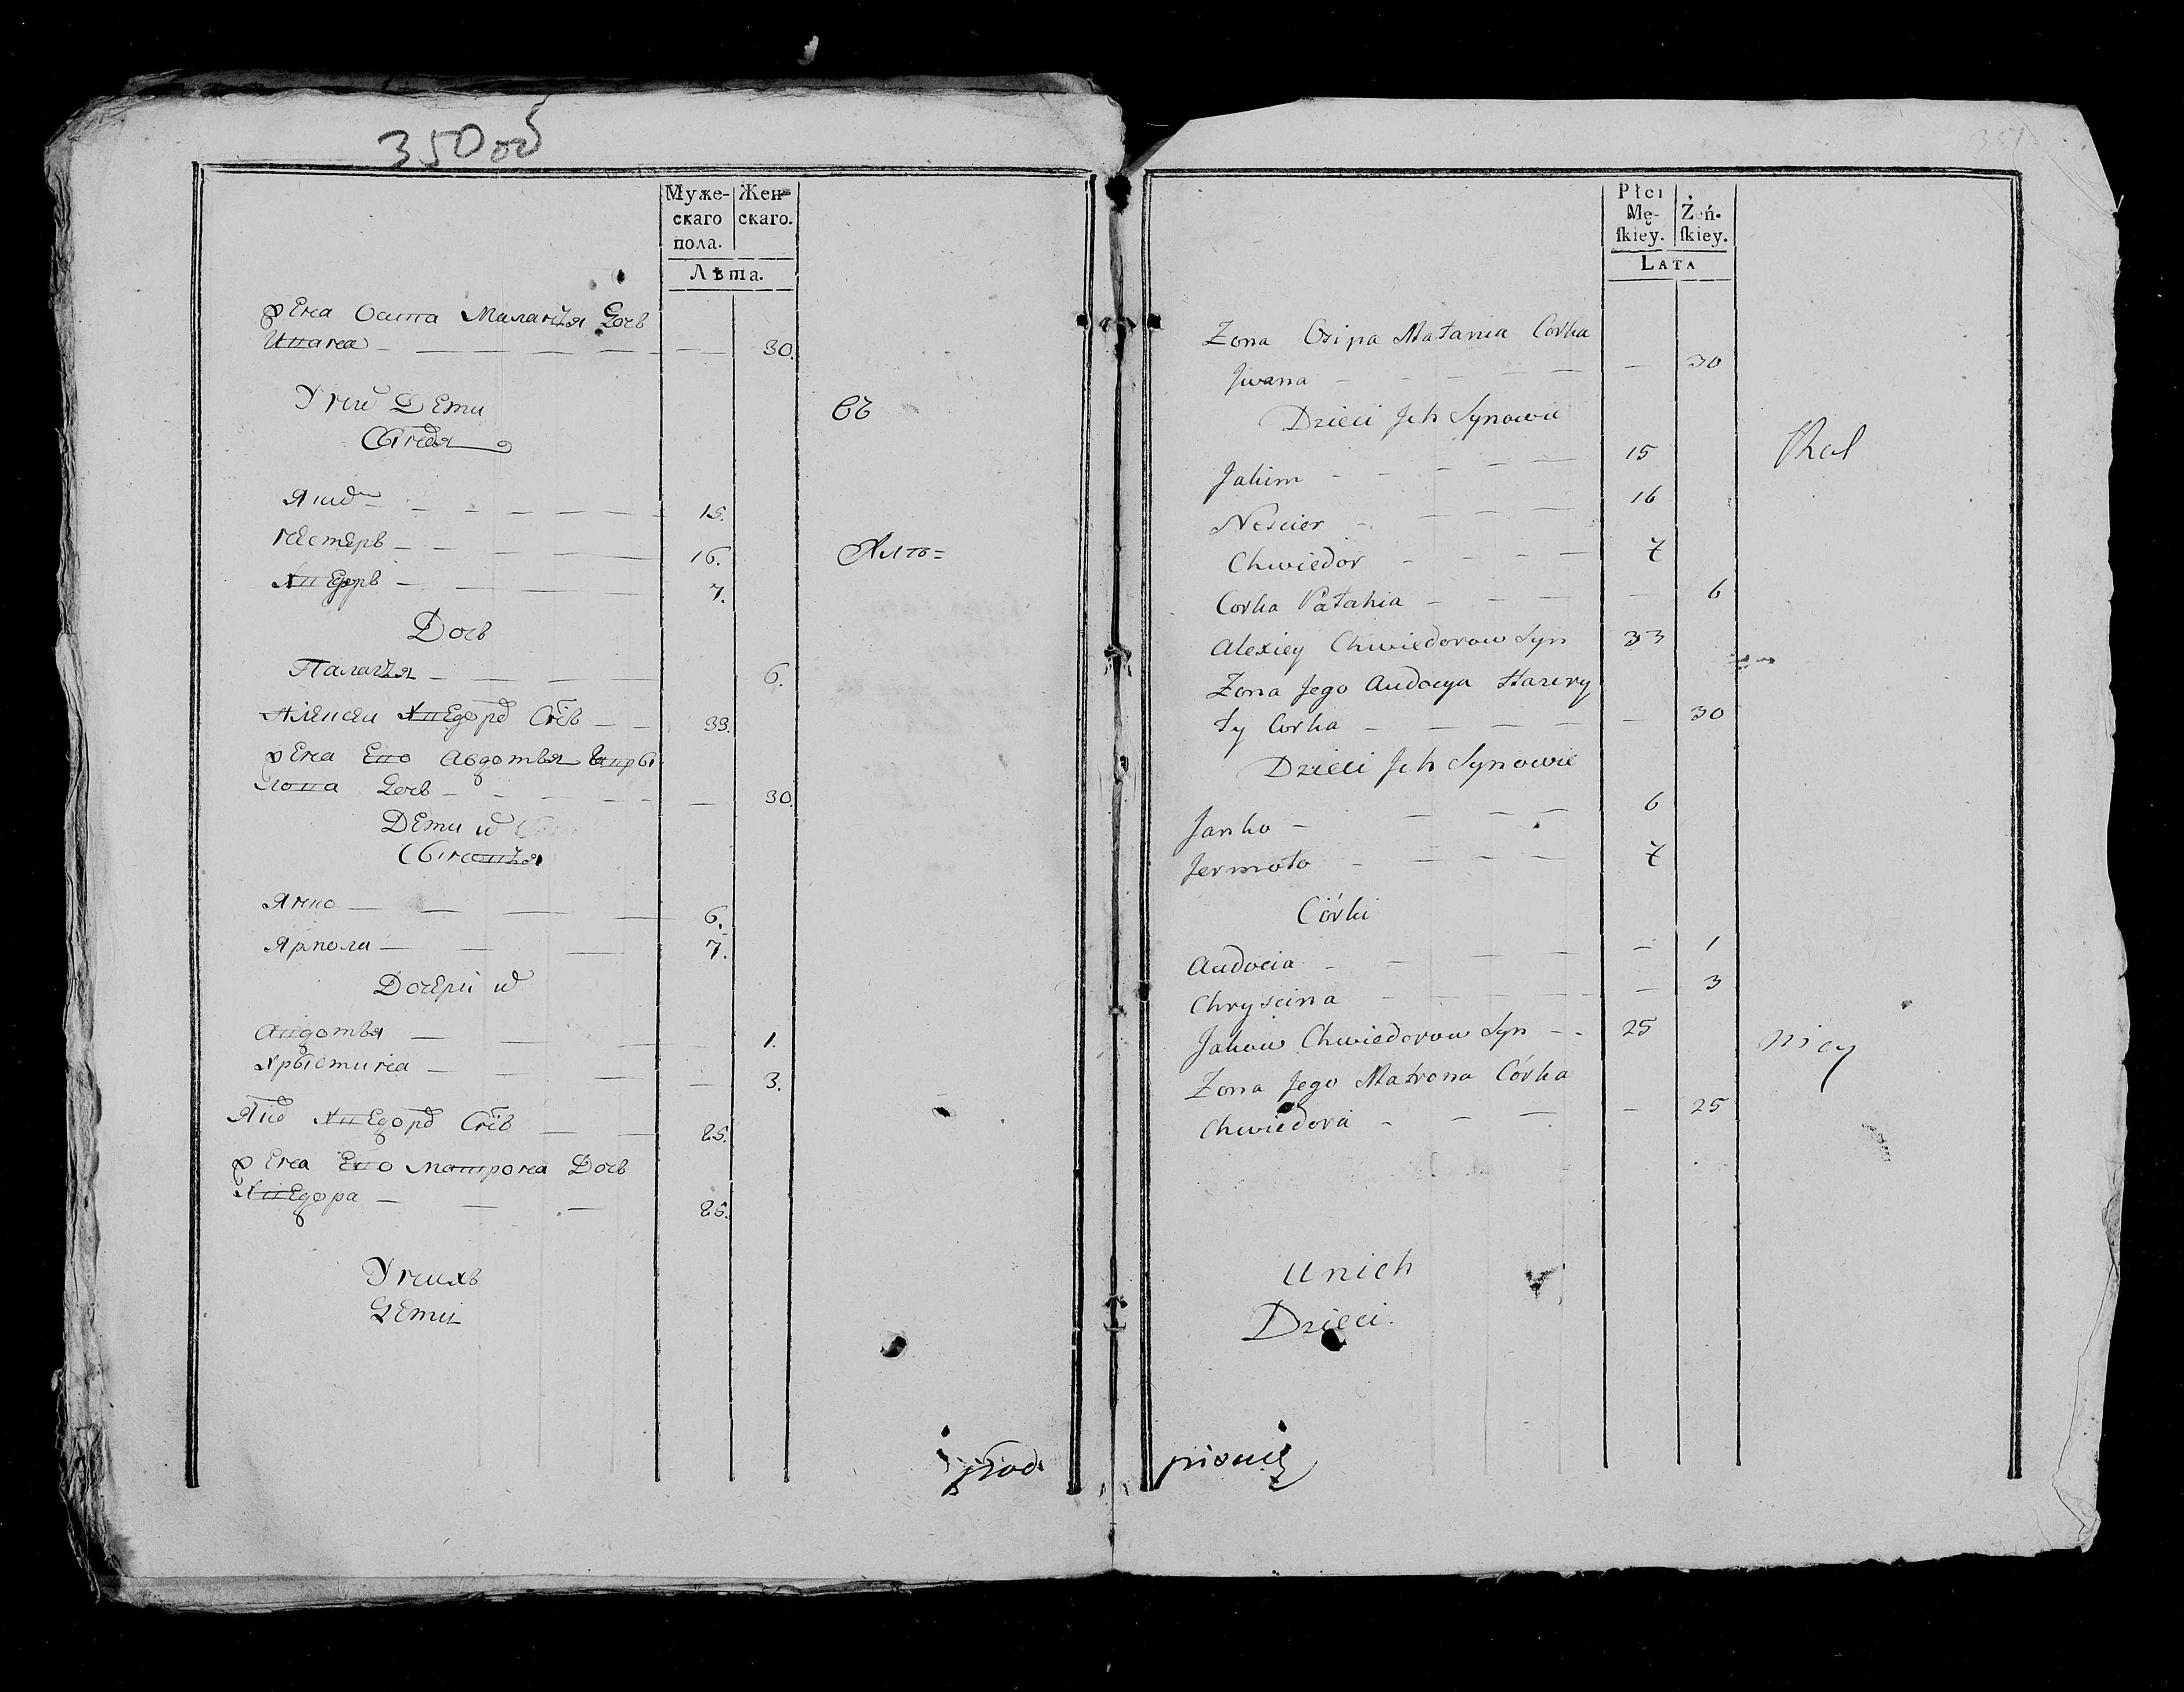 350 об
Муже-
скаго
пола.
Жен-
скаго.
Лѣта.
жена Осипа Маланья дочь
Ивана 30.
У них Дети
Сыновя
въ
Яким 15.
Нестеръ 16.
Хведоръ 7.
Дочь
Палагея 6.
Алексеи Хведоров Снъ 33.
жена Ево Авдотья Гавры
лова дочь 30.
Дети их
Сыновья
Янко 6.
Ярмола 7.
Дочери их
Авдотья 1.
Хрыстина 3.
Яков Хведоров Снъ 25.
жена Ево Матрона Дочь
Хведора 25.
У нихъ
Дети
351
Płci
Mę-
ſkiey.
Żeń-
ſkiey.
LATA
Zona Osipa Małania Corka
Jwana 30
Dzieci Jch Synowie
Jakim 15
Nescier 16
Chwiedor 7
Corka Pałahia 6
Alexiey Chwiedorow Syn 33
Zona Jego Audocya Hawry
ły Corka 30
Dzieci Jch Synowie
Janko 6
Jermoło 7
Córki
Audocia 1
Chryscina 3
Jakow Chwiedorow Syn 25
Zona Jego Matrona Córka
Chwiedora 25
U nich
Dzieci.